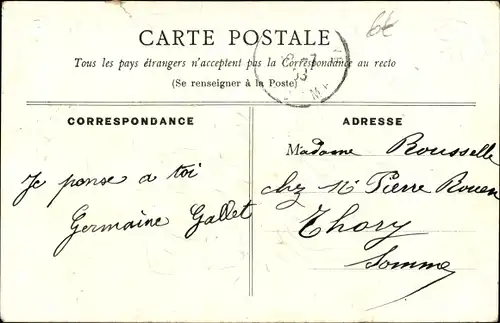 CARTE POSTALE
Tous les pays étrangers n'acceptent pas la Correspondance au recto
(Se renseigner à la Poste)
CORRESPONDANCE
ADRESSE
Je pense a toi
Germaine Gallet
Madame Rousselle
chez Mr Pierre Rouen
Thory
Somme
6€